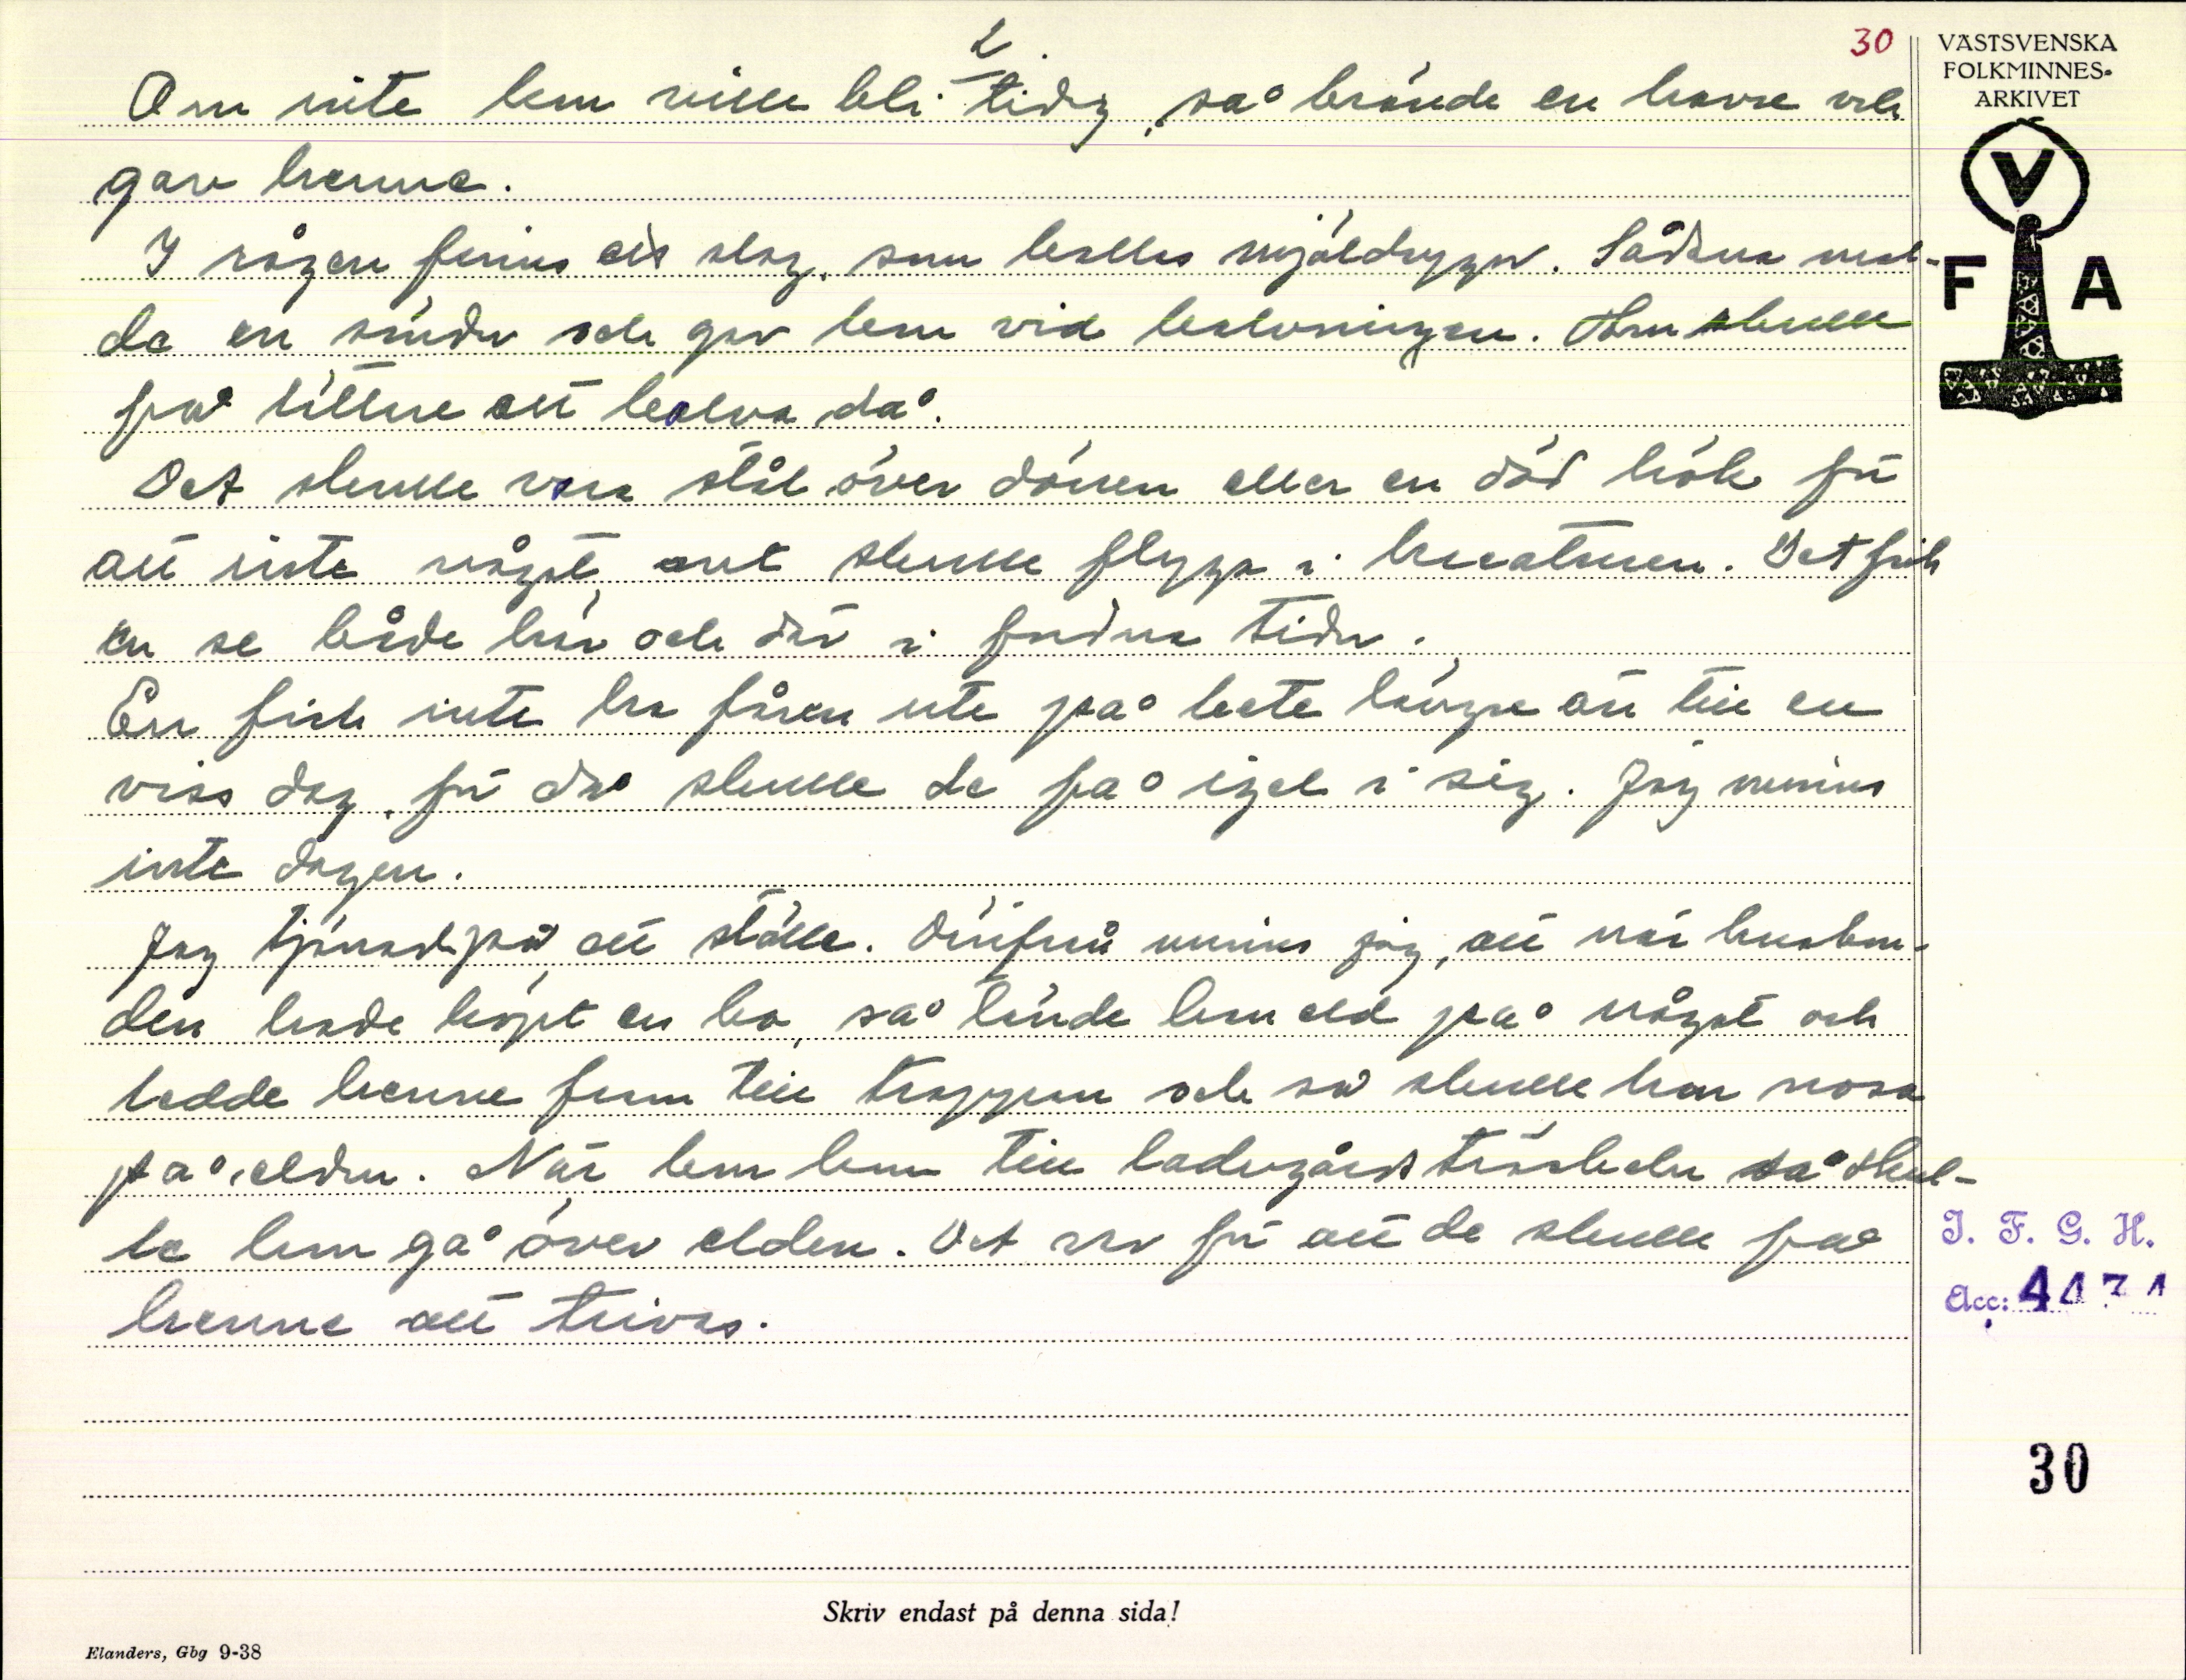 2.
30
VÄSTSVENSKA
FOLKMINNES-
ARKIVET
V
F A
Om inte kon ville bli tidig, så brände en havre och
gav henne.
I rågen finns ett slag, som kallas mjöldryger. Sådana mal-
de en sönder och gav kon vid kalvningen. Hon skulle
få lättare att kalva då.
Det skulle vara stål över dörren eller en död hök för
att inte något ont skulle flyga i kreaturen. Det fick
en se både här och där i fordna tider.
En fick inte ha fåren ute på bete längre än till en
viss dag, för då skulle de få igel i sig. Jag minns
inte dagen.
Jag tjänade på ett ställe. Därifrå minns jag, att när husbon-
den hade köpt en ko, så tände han eld på något och
ledde henne fram till trappan och så skulle hon nosa
på elden. När hon kom till ladugårdströskeln så skul-
le hon gå över elden. Det var för att de skulle få
henne att trivas.
I. F. G. H.
Acc: 4471
30
Skriv endast på denna sida!
Elanders, Gbg 9-38